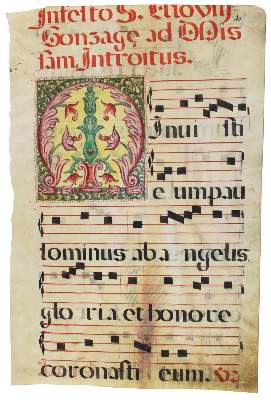 In festo S. Aloysij
Gonzagę ad Miss
sam. Introitus.
Minuisti
eum pau
lominus ab angelis
gloria et honore
coronasti eum.